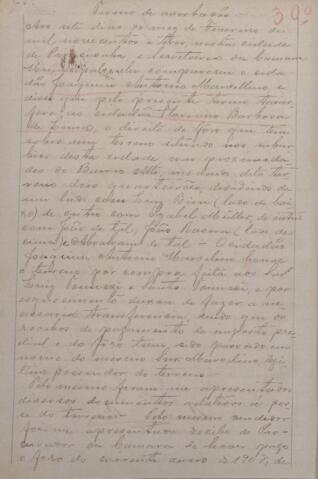 30
Termo de averbação
Aos sete dias do mez de Fevereiro de
mil novecentos e oito, nesta cidade
de e Secretaria da Camara
Municipal, compareceu o cida-
dão Joaquim Antonio Marcellino e
disse que pelo presente termo trans-
fere ao cidadão Barbosa
de Lima, o direito de fôro que tem
sobre um terreno situado nos subur-
bios desta cidade, nas proximida-
des do Buraco, medindo dito ter-
reno dois quarteirões, dividindo de
um lado com (lado de bai-
xo) de outro com Izabel Müller, de outro
com João de tal, João (lado de
cima) e Abrahão de tal. O cidadão
Joaquim Antonio Marcelino houve
o terreno por compra feita aos
e
esquecimento deixou de fazer a ne-
cessaria transferencia, sendo que os
recibos de pagamento do imposto pre-
dial e do fôro tem sido passado em
nome do mesmo Snr. Marcelino, legi-
timo possuidor do terreno.
Pelo mesmo foram me apresentados
diversos documentos relativos a pos-
se do terreno. Pelo mesmo senhor
foi me apresentado recibo do Pro-
curador da Camara de haver pago
o foro do corrente anno de 1908, de